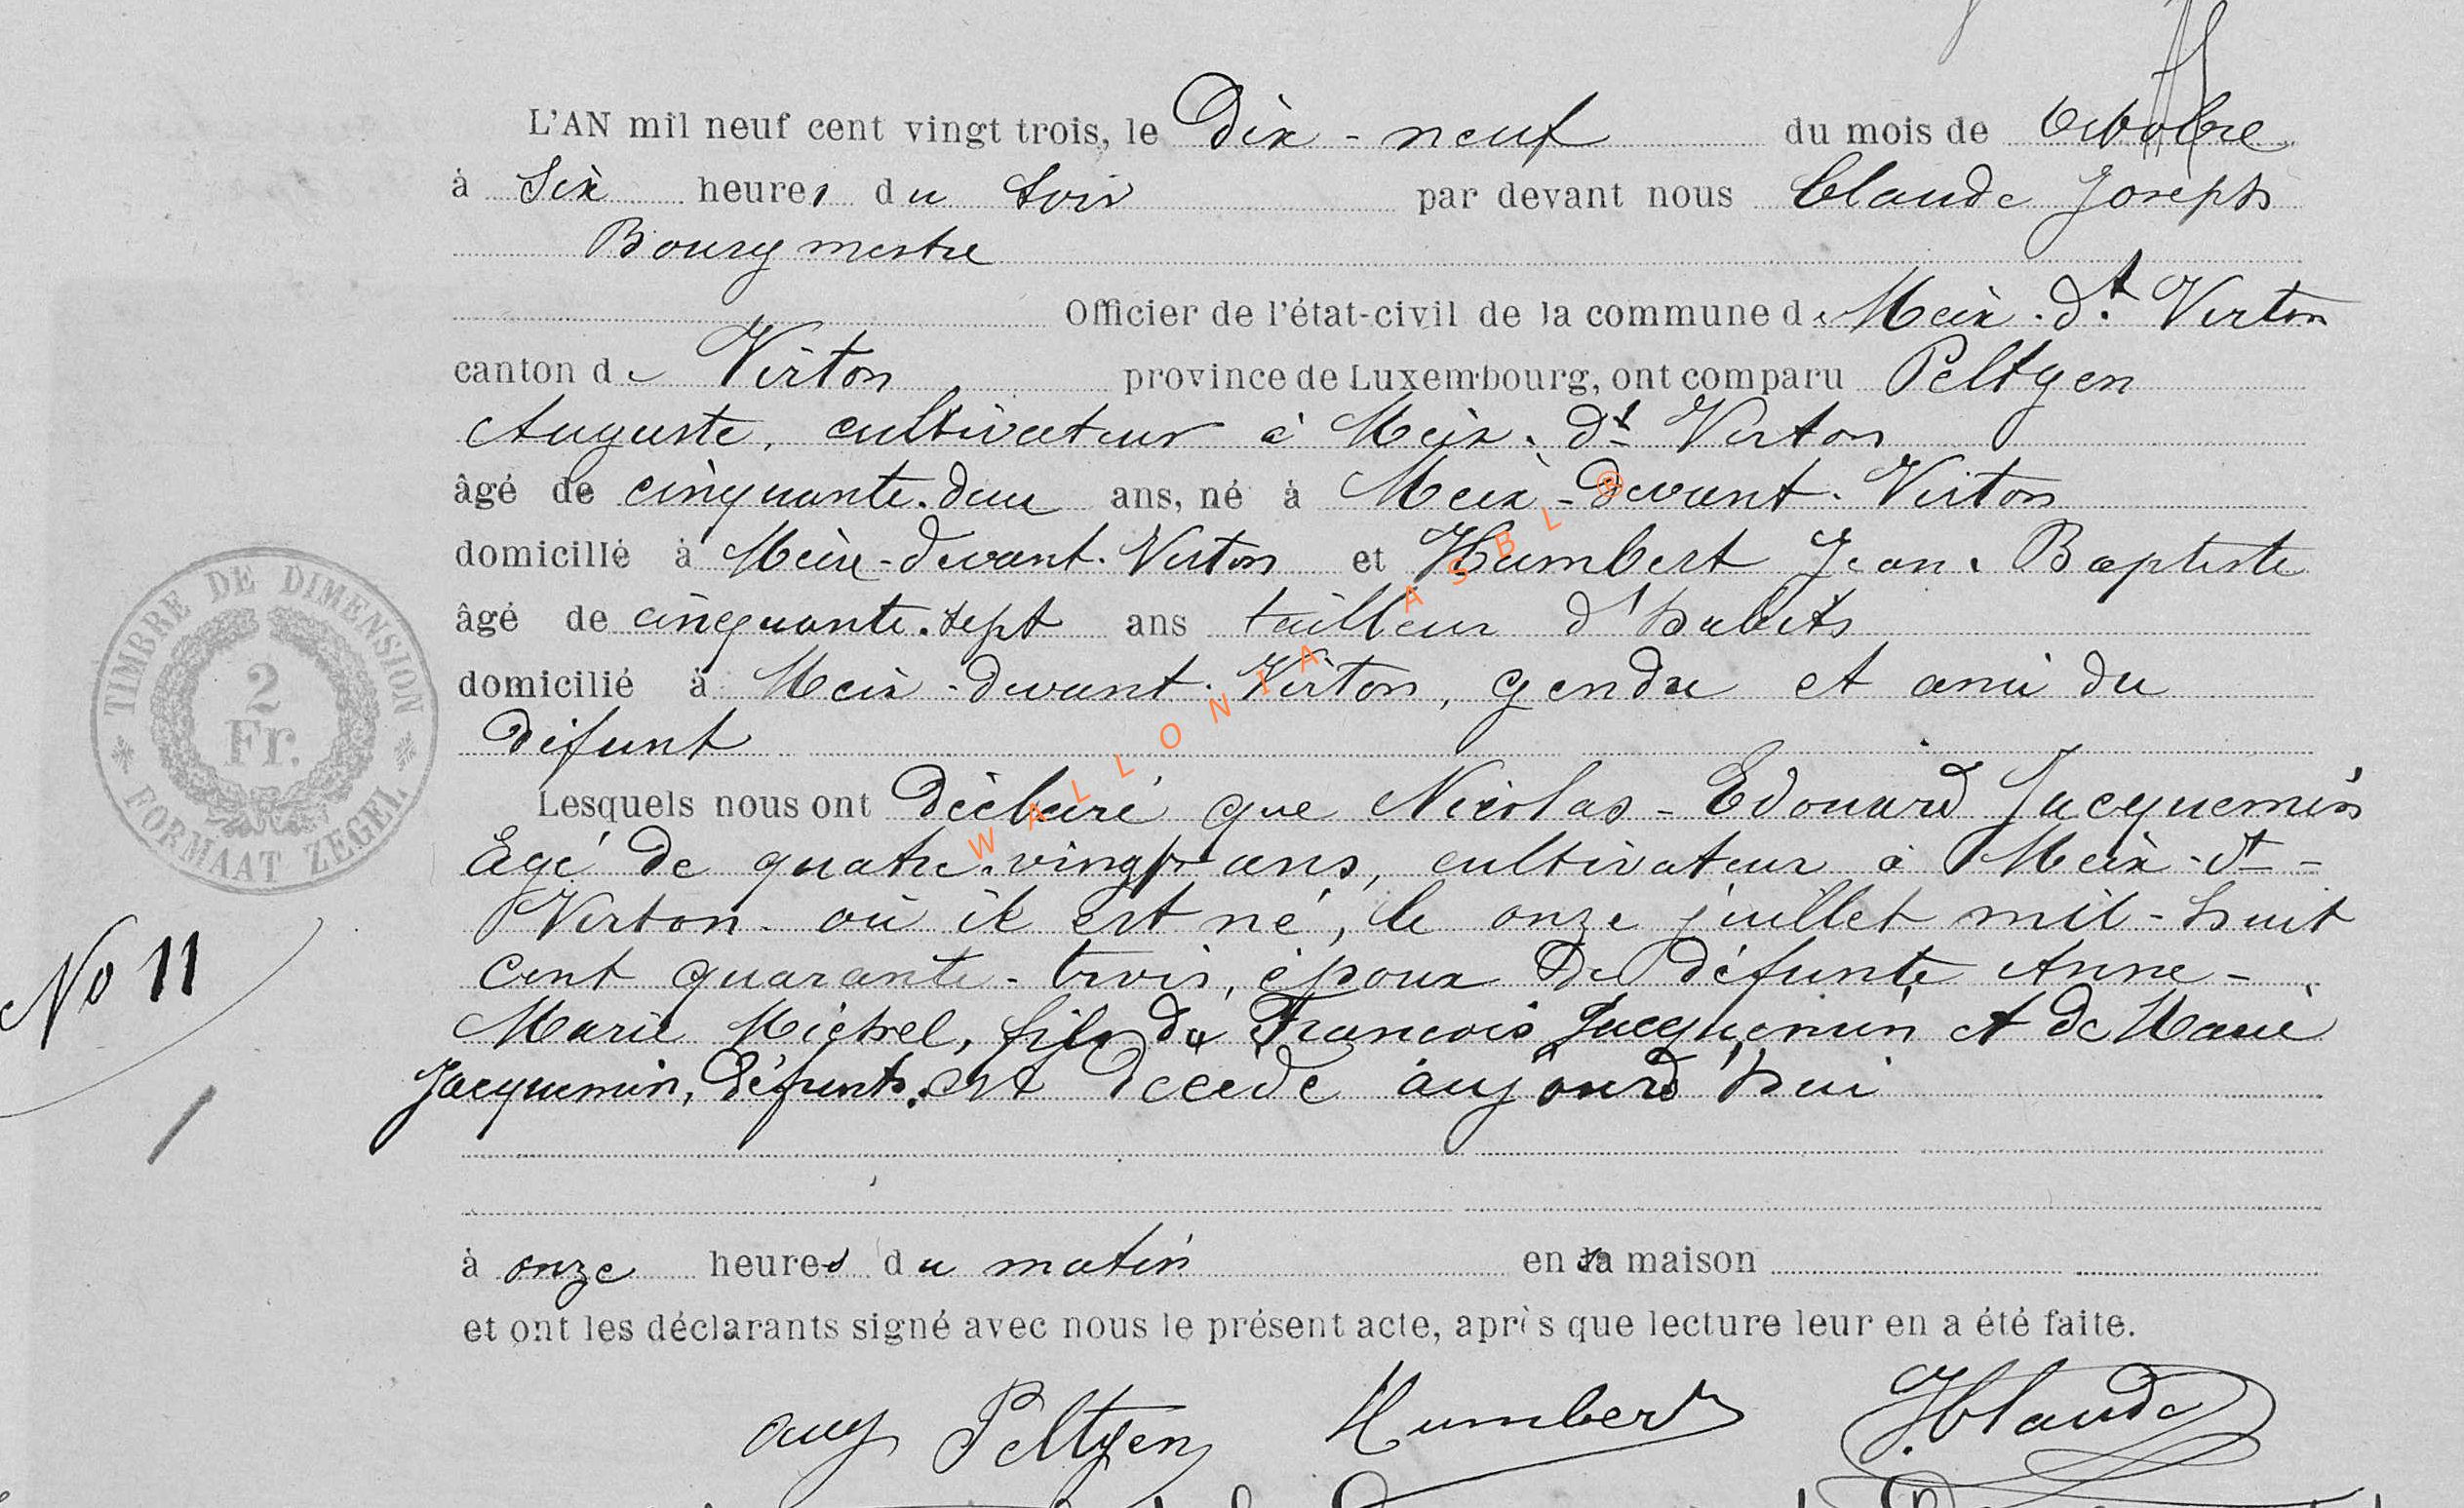 L'AN mil neuf cent vingt trois, le Dix-neuf du mois de Octobre
à Six heures du Soir par devant nous Claude Joseph
Bourgmestre
Officier de l'état-civil de la commune de Meix-dt Virton
canton de Virton province de Luxembourg, ont comparu Peltgen
Auguste, cultivateur à Meix-dt Virton
âgé de cinquante-deux ans, né à Meix-devant-Virton
domicilié à Meix-devant-Virton et Humbert Jean-Baptiste
âgé de cinquante-sept ans tailleur d'habits
domicilié à Meix-devant-Virton, gendre et ami du
défunt
Lesquels nous ont déclaré que Nicolas-Edouard Jacquemin
âgé de quatre-vingt ans, cultivateur à Meix-dt-
Virton où il est né, le onze juillet mil-huit
cent quarante-trois, époux de défunte Anne-
Marie Michel, fils de François Jacquemin et de Marie
Jacquemin, défunts. est décédé aujourd'hui
à onze heures du matin en sa maison
et ont les déclarants signé avec nous le présent acte, après que lecture leur en a été faite.
aug Peltgen Humbert J Claude
TIMBRE DE DIMENSION
2
Fr.
FORMAAT ZEGEL
No 11
WALLONIA ASBL ©